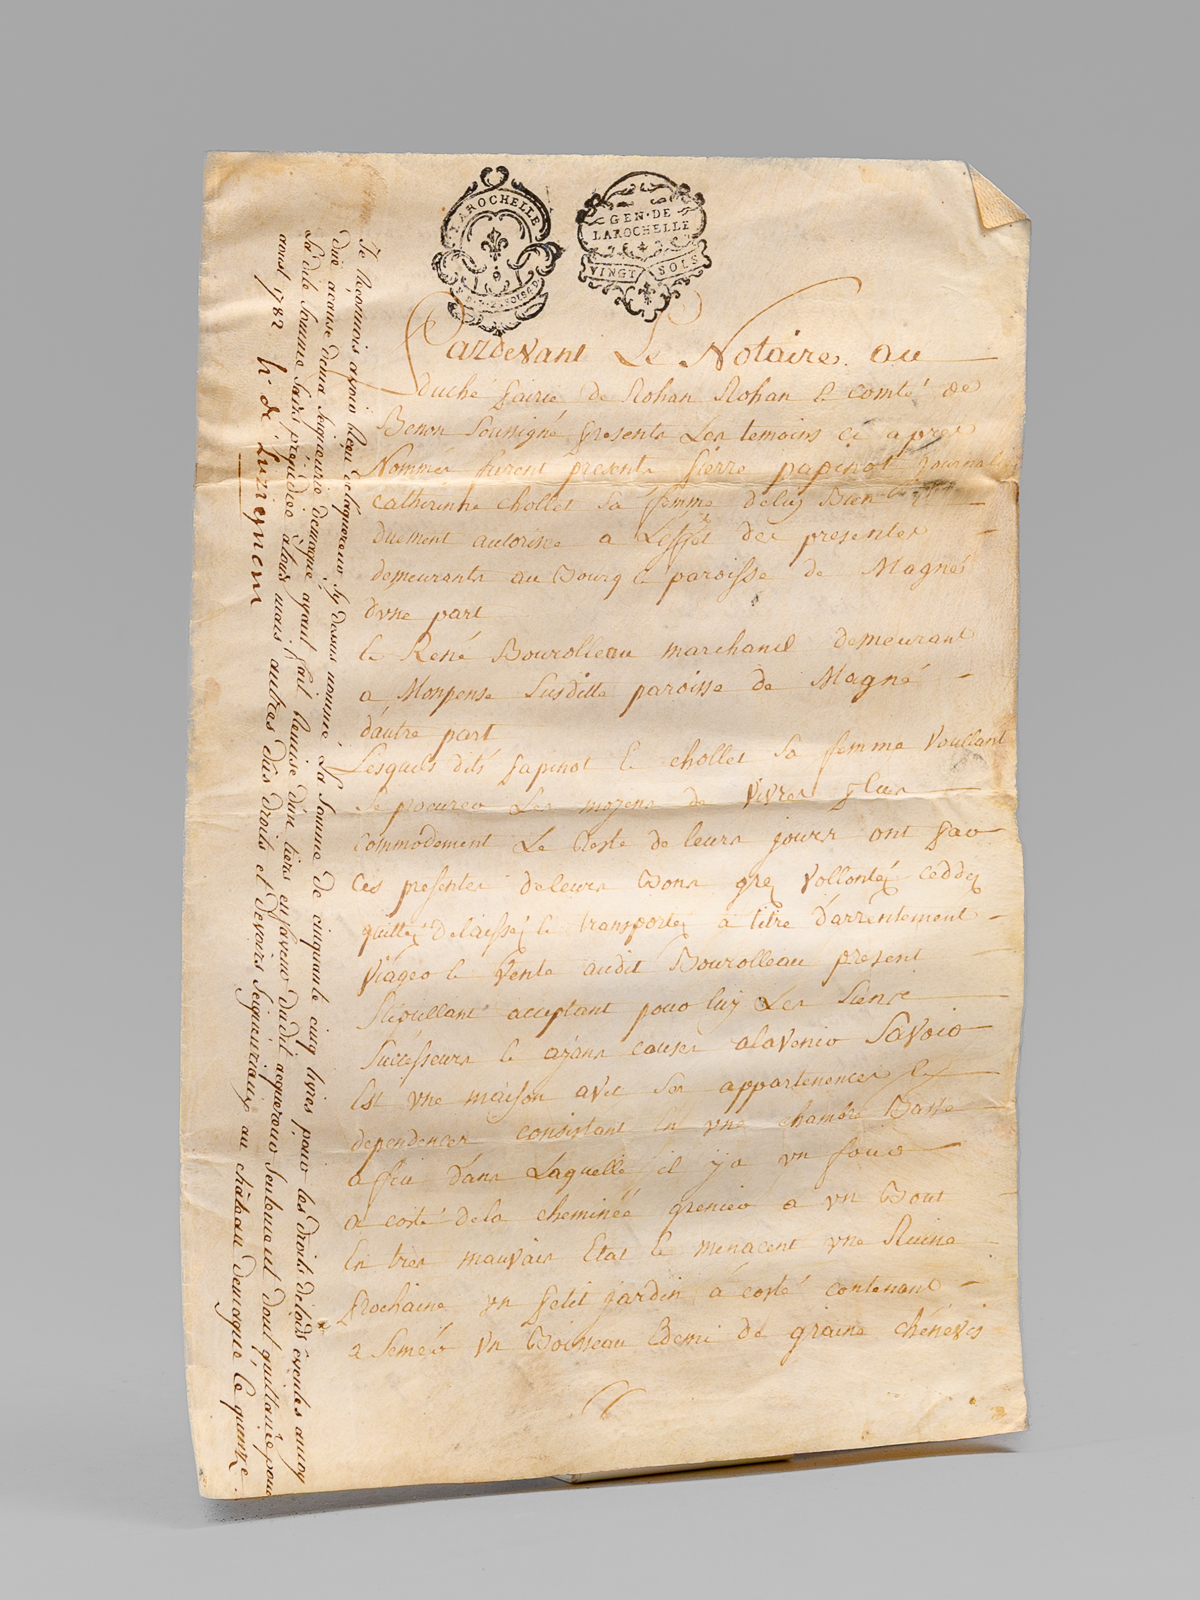 LAROCHELLE
GEN·DE
LAROCHELLE
VINGT SOLS
Pardevant Le Notaire au
duché pairie de Rohan Rohan & comté de
Benon Soussigné presents Les temoins cy apres
Nommés furent presents pierre papinot journalier
catherinne chollet sa femme deluy Bien &
duement autorisée a Leffet des presentes
demeurants au Bourg & paroisse de Magné
dvne part
& René Bourolleau marchand demeurant
a Monpense Susditte paroisse de Magné
dautre part
Lesquels dits papinot & chollet sa femme voullant
se procurer Les moyens de vivres plus
commodement Le Reste de leurs jours ont par
ces presentes deleurs Bons grez vollontéz ceddéz
quittéz delaisséz & transportéz a titre darrentement
viager & vente audit Bourolleau present
Stipullant acceptant pour luy Les Siens
Successeurs & ayans causes alavenir Savoir
Est vne maison avec ses appartenences &
dependences consistant En vne chambre Basse
a feu dans Laquelle il y a vn four
a costé dela cheminée grenier a vn Bout
En tres mauvais Etat & menacent vne Ruine
prochaine vn petit jardin a costé contenant
a Semér vn Boisseau & demi de graine chénevis
Je Reconnois avoir Reçu delaquereur cy dessus nommé La Somme de cinquante cinq livres pour les droits delods & ventes auoy
due acause dema Seigneurie demagné ayant fait Remise dun tiers enfaveur dudit acquereur Seulement dont quittance pour
Ladite Somme Sans prejudice atous mais autres dus droits et devoirs Seigneuriaux au château demagné le quinze
aoust 1782 h. de Luzignem